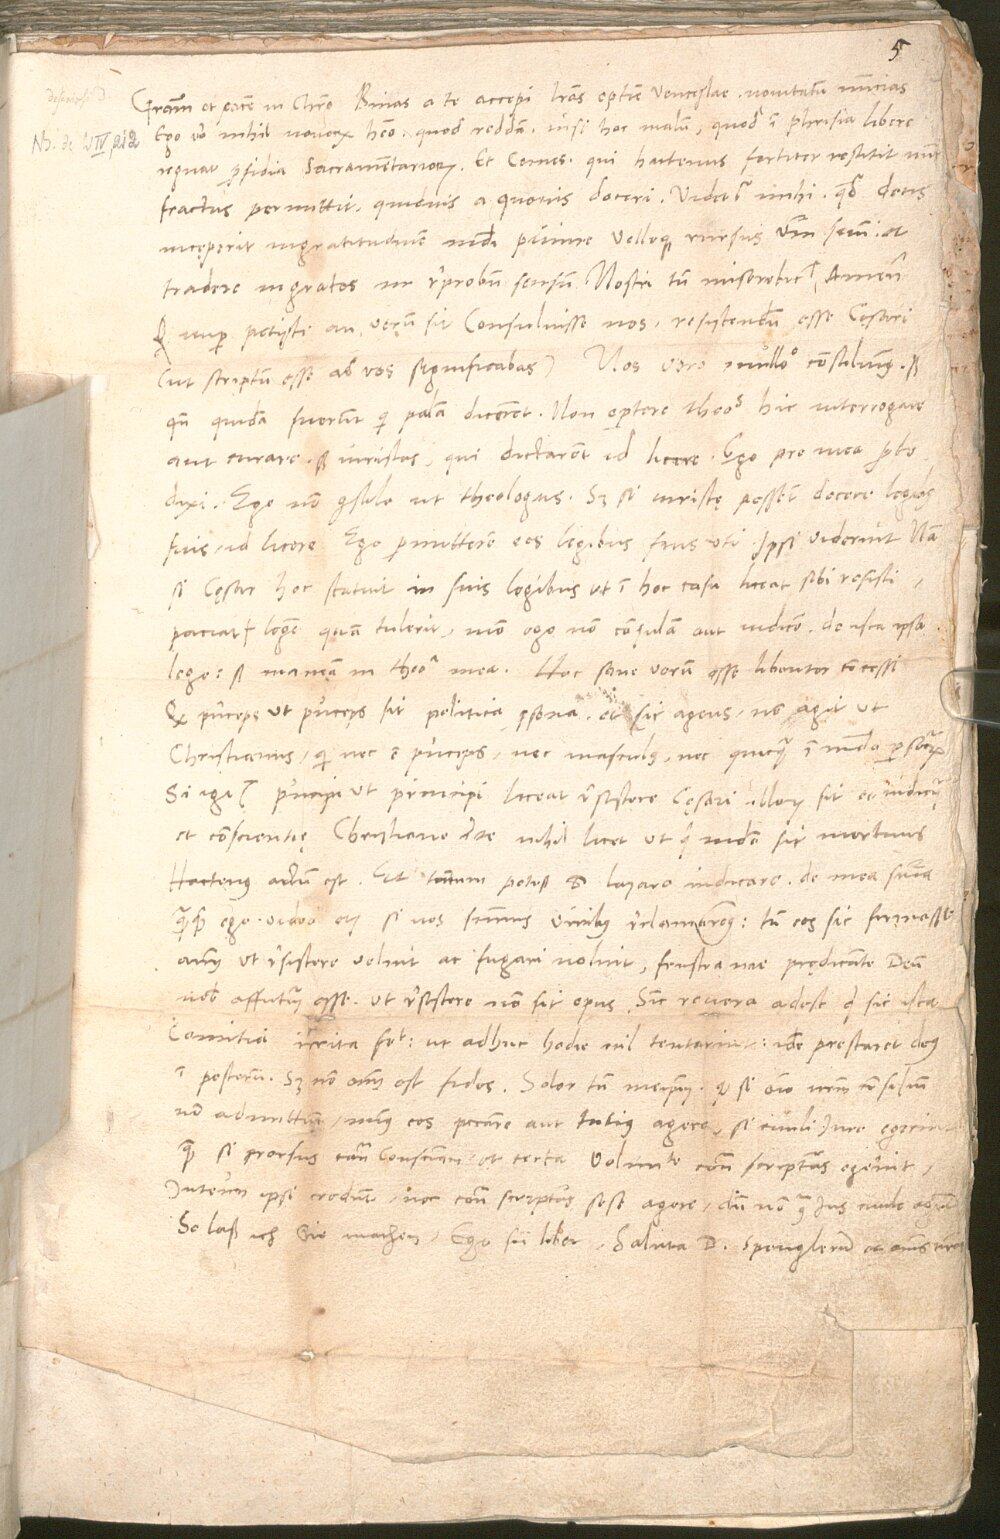 5
Gratiam et pacem in Christo Binas a te accepi lras optime Venceslae . novitatum nuncias
Nb. de W IV p 212
Ego vo nihil novorum habeo . quod reddam . nisi hoc malum , quod i phrisia libere
regnat pfidia Sacramentariorum . Et Comes . qui hactenus fortiter restitit nunc
fractus permittit . quidvis a quovis doceri . Videtur mihi . quod deus
inceperit ingratitudinem mundi punire Velleque rursus Vim suam et
tradere ingratos in reprobum sensum Nostri tamen miserebitur , Amen
Q nuper petisti an verum sit Consuluisse nos , resistendum esse Cesari
(ut scriptum esse ad vos significabas) Nos vero nullo consilium . sed
quando quidam fuerunt qui palam dicerent . Non oportere theologos hic interrogare
aut curare . sed iuristas , qui dictarent id licere . Ego pro mea parte
dixi . Ego non consulo ut theologus . Sz si iuriste possent docere legibus
suis , id licere Ego permitterem eos legibus suis uti . Ipsi viderint Nam
si Cesar hoc statuit in suis legibus ut i hoc casu liceat sibi resisti ,
paciatur legem quam tulerit , modo ego non consulam aut iudicem . de ista ipsa
lege : sed maneam in theologia mea . Hoc sane verum esse libenter concessi
Q princeps ut princeps sit politica persona . et sic agens , non agit ut
Christianus , qui nec e princeps , nec masculus , nec quicquam i mundo personarum
Si igitur principi ut principi liceat resistere Cesari illorum sit et iudicium
et conscientie Christiano certe nihil licet ut qui mundo sit mortuus
Hactenus actum est . Et tantum potes D lazaro indicare . de mea sententia
quamquam ego video etiam si nos summis viribus reclamaremus : tamen eos sic firmasse
animum ut resistere velint ac fugari nolint , frustra me predicante Deum
nobis affuturum esse . ut resistere non sit opus , Sicut revera adest quod sic ista
Comitia irrita fecit : ut adhuc hodie nil tentarint : idem prestaret deus
i posterum . Sz non omnium est fides . Solor tamen meipsum . q si omnino nostrum consilium
non admittunt , minus eos peccare aut tutius agere , si civili Iure egerint
quam si prorsus contra Conscientiam et certa voluntate contra scripturas egerint ,
Interim ipsi credunt , hoc contra scripturas sese agere , dum non contra Ius civile agunt
So laß ich sie machen , Ego sum liber , Saluta D . Spenglerum et omnes nostros